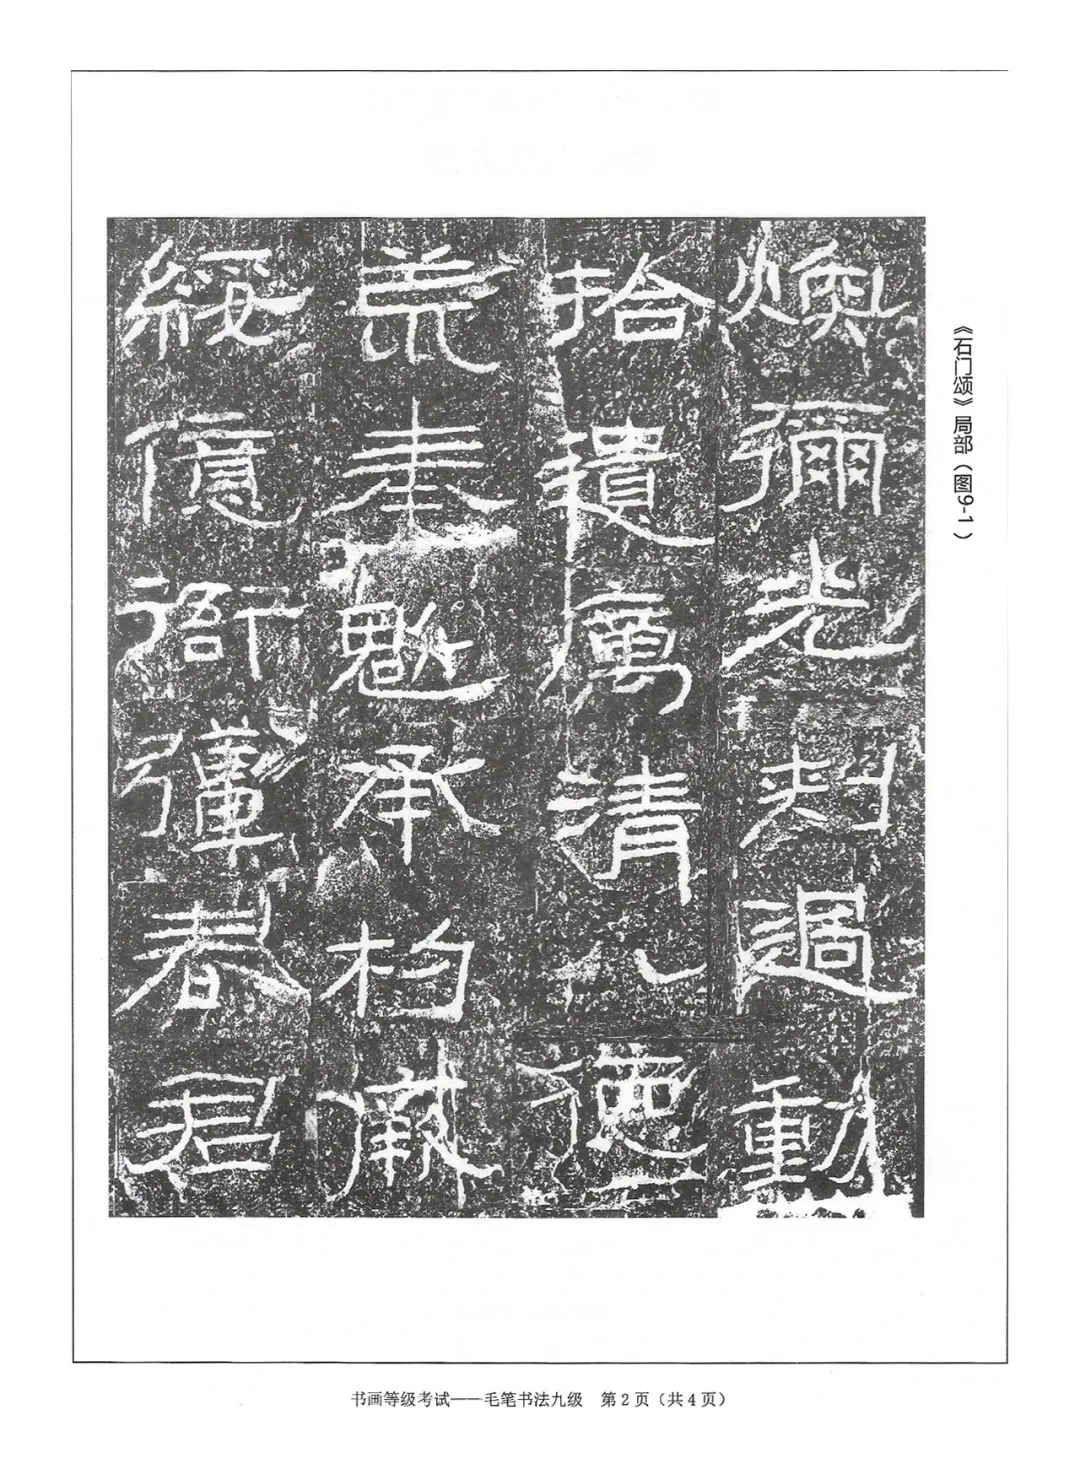 《石门颂》局部（图9-1）
煥彌光刺過動
拾遺厲清八德
荒奉魁承杓厥
綏億衙彊春君
书画等级考试——毛笔书法九级 第2页（共4页）